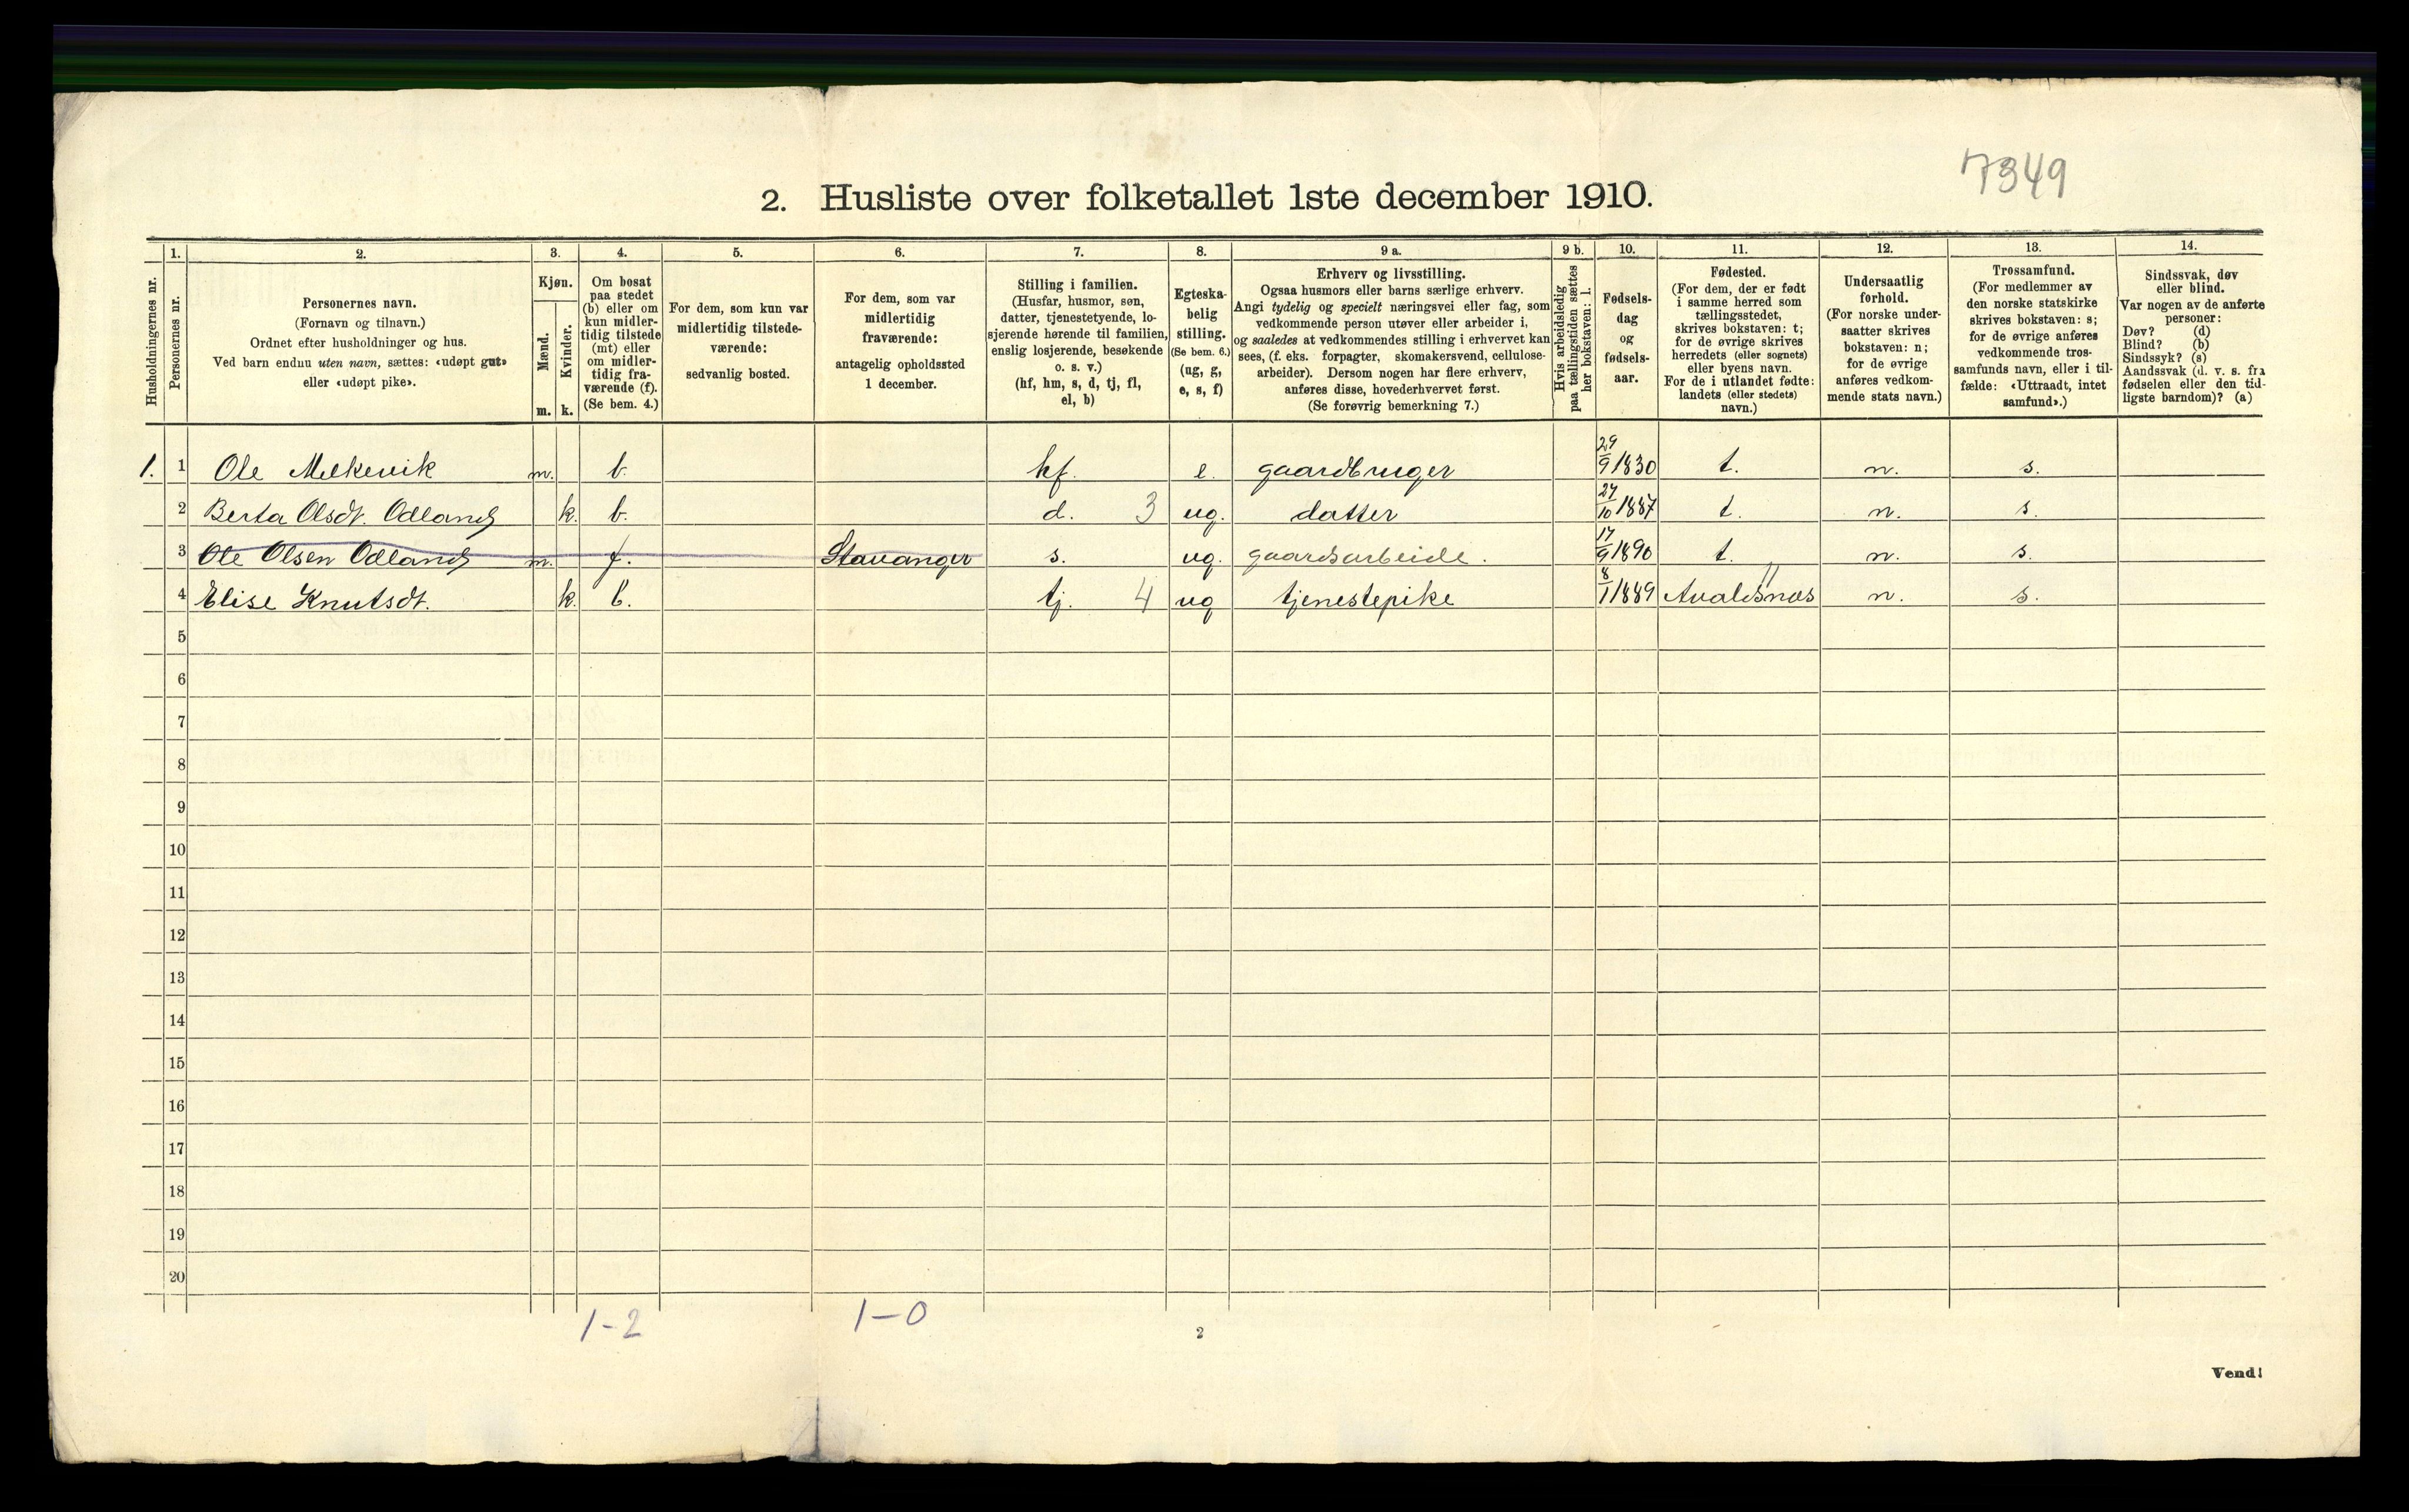 7349
2. Husliste over folketallet 1ste december 1910.
Husholdningernes nr.
1.
Personernes nr.
2.
Personernes navn.
(Fornavn og tilnavn.)
Ordnet efter husholdninger og hus.
Ved barn endnu uten navn, sættes: «udøpt gut»
eller «udøpt pike».
3.
Kjøn.
Mænd.
m.
Kvinder.
k.
4.
Om bosat
paa stedet
(b) eller om
kun midler-
tidig tilstede
(mt) eller
om midler-
tidig fra-
værende (f).
(Se bem. 4.)
5.
For dem, som kun var
midlertidig tilstede-
værende:
sedvanlig bosted.
6.
For dem, som var
midlertidig
fraværende:
antagelig opholdssted
1 december.
7.
Stilling i familien.
(Husfar, husmor, søn,
datter, tjenestetyende, lo-
sjerende hørende til familien,
enslig losjerende, besøkende
o. s. v.)
(hf, hm, s, d, tj, fl,
el, b)
8.
Egteska-
belig
stilling.
(Se bem. 6.)
(ug, g,
e, s, f)
9 a.
Erhverv og livsstilling.
Ogsaa husmors eller barns særlige erhverv.
Angi tydelig og specielt næringsvei eller fag, som
vedkommende person utøver eller arbeider i,
og saaledes at vedkommendes stilling i erhvervet kan
sees, (f. eks. forpagter, skomakersvend, cellulose-
arbeider). Dersom nogen har flere erhverv,
anføres disse, hovederhvervet først.
(Se forøvrig bemerkning 7.)
9 b.
Hvis arbeidsledig
paa tællingstiden sættes
her bokstaven: l.
10.
Fødsels-
dag
og
fødsels-
aar.
11.
Fødested.
(For dem, der er født
i samme herred som
tællingsstedet,
skrives bokstaven: t;
for de øvrige skrives
herredets (eller sognets)
eller byens navn.
For de i utlandet fødte:
landets (eller stedets)
navn.)
12.
Undersaatlig
forhold.
(For norske under-
saatter skrives
bokstaven: n;
for de øvrige
anføres vedkom-
mende stats navn.)
13.
Trossamfund.
(For medlemmer av
den norske statskirke
skrives bokstaven: s;
for de øvrige anføres
vedkommende tros-
samfunds navn, eller i til-
fælde: «Uttraadt, intet
samfund».)
14.
Sindssvak, døv
eller blind.
Var nogen av de anførte
personer:
Døv? (d)
Blind? (b)
Sindssyk? (s)
Aandssvak (d. v. s. fra
fødselen eller den tid-
ligste barndom)? (a)
1. 1 Ole Melkevik m. b. hf. e. gaardbruger 29/9 1830 t. n. s.
2 Berta Olsdt. Odland k. b. d. 3 ug. datter 27/10 1887 t. n. s.
3 Ole Olsen Odland m. f. Stavanger s. ug. gaardsarbeide. 17/9 1890 t. n. s.
4 Elise Knutsdt. k. b. tj. 4 ug tjenestepike 8/1 1889 Avaldsnæs n. s.
5
6
7
8
9
10
11
12
13
14
15
16
17
18
19
20
1-2 1-0
2
Vend!